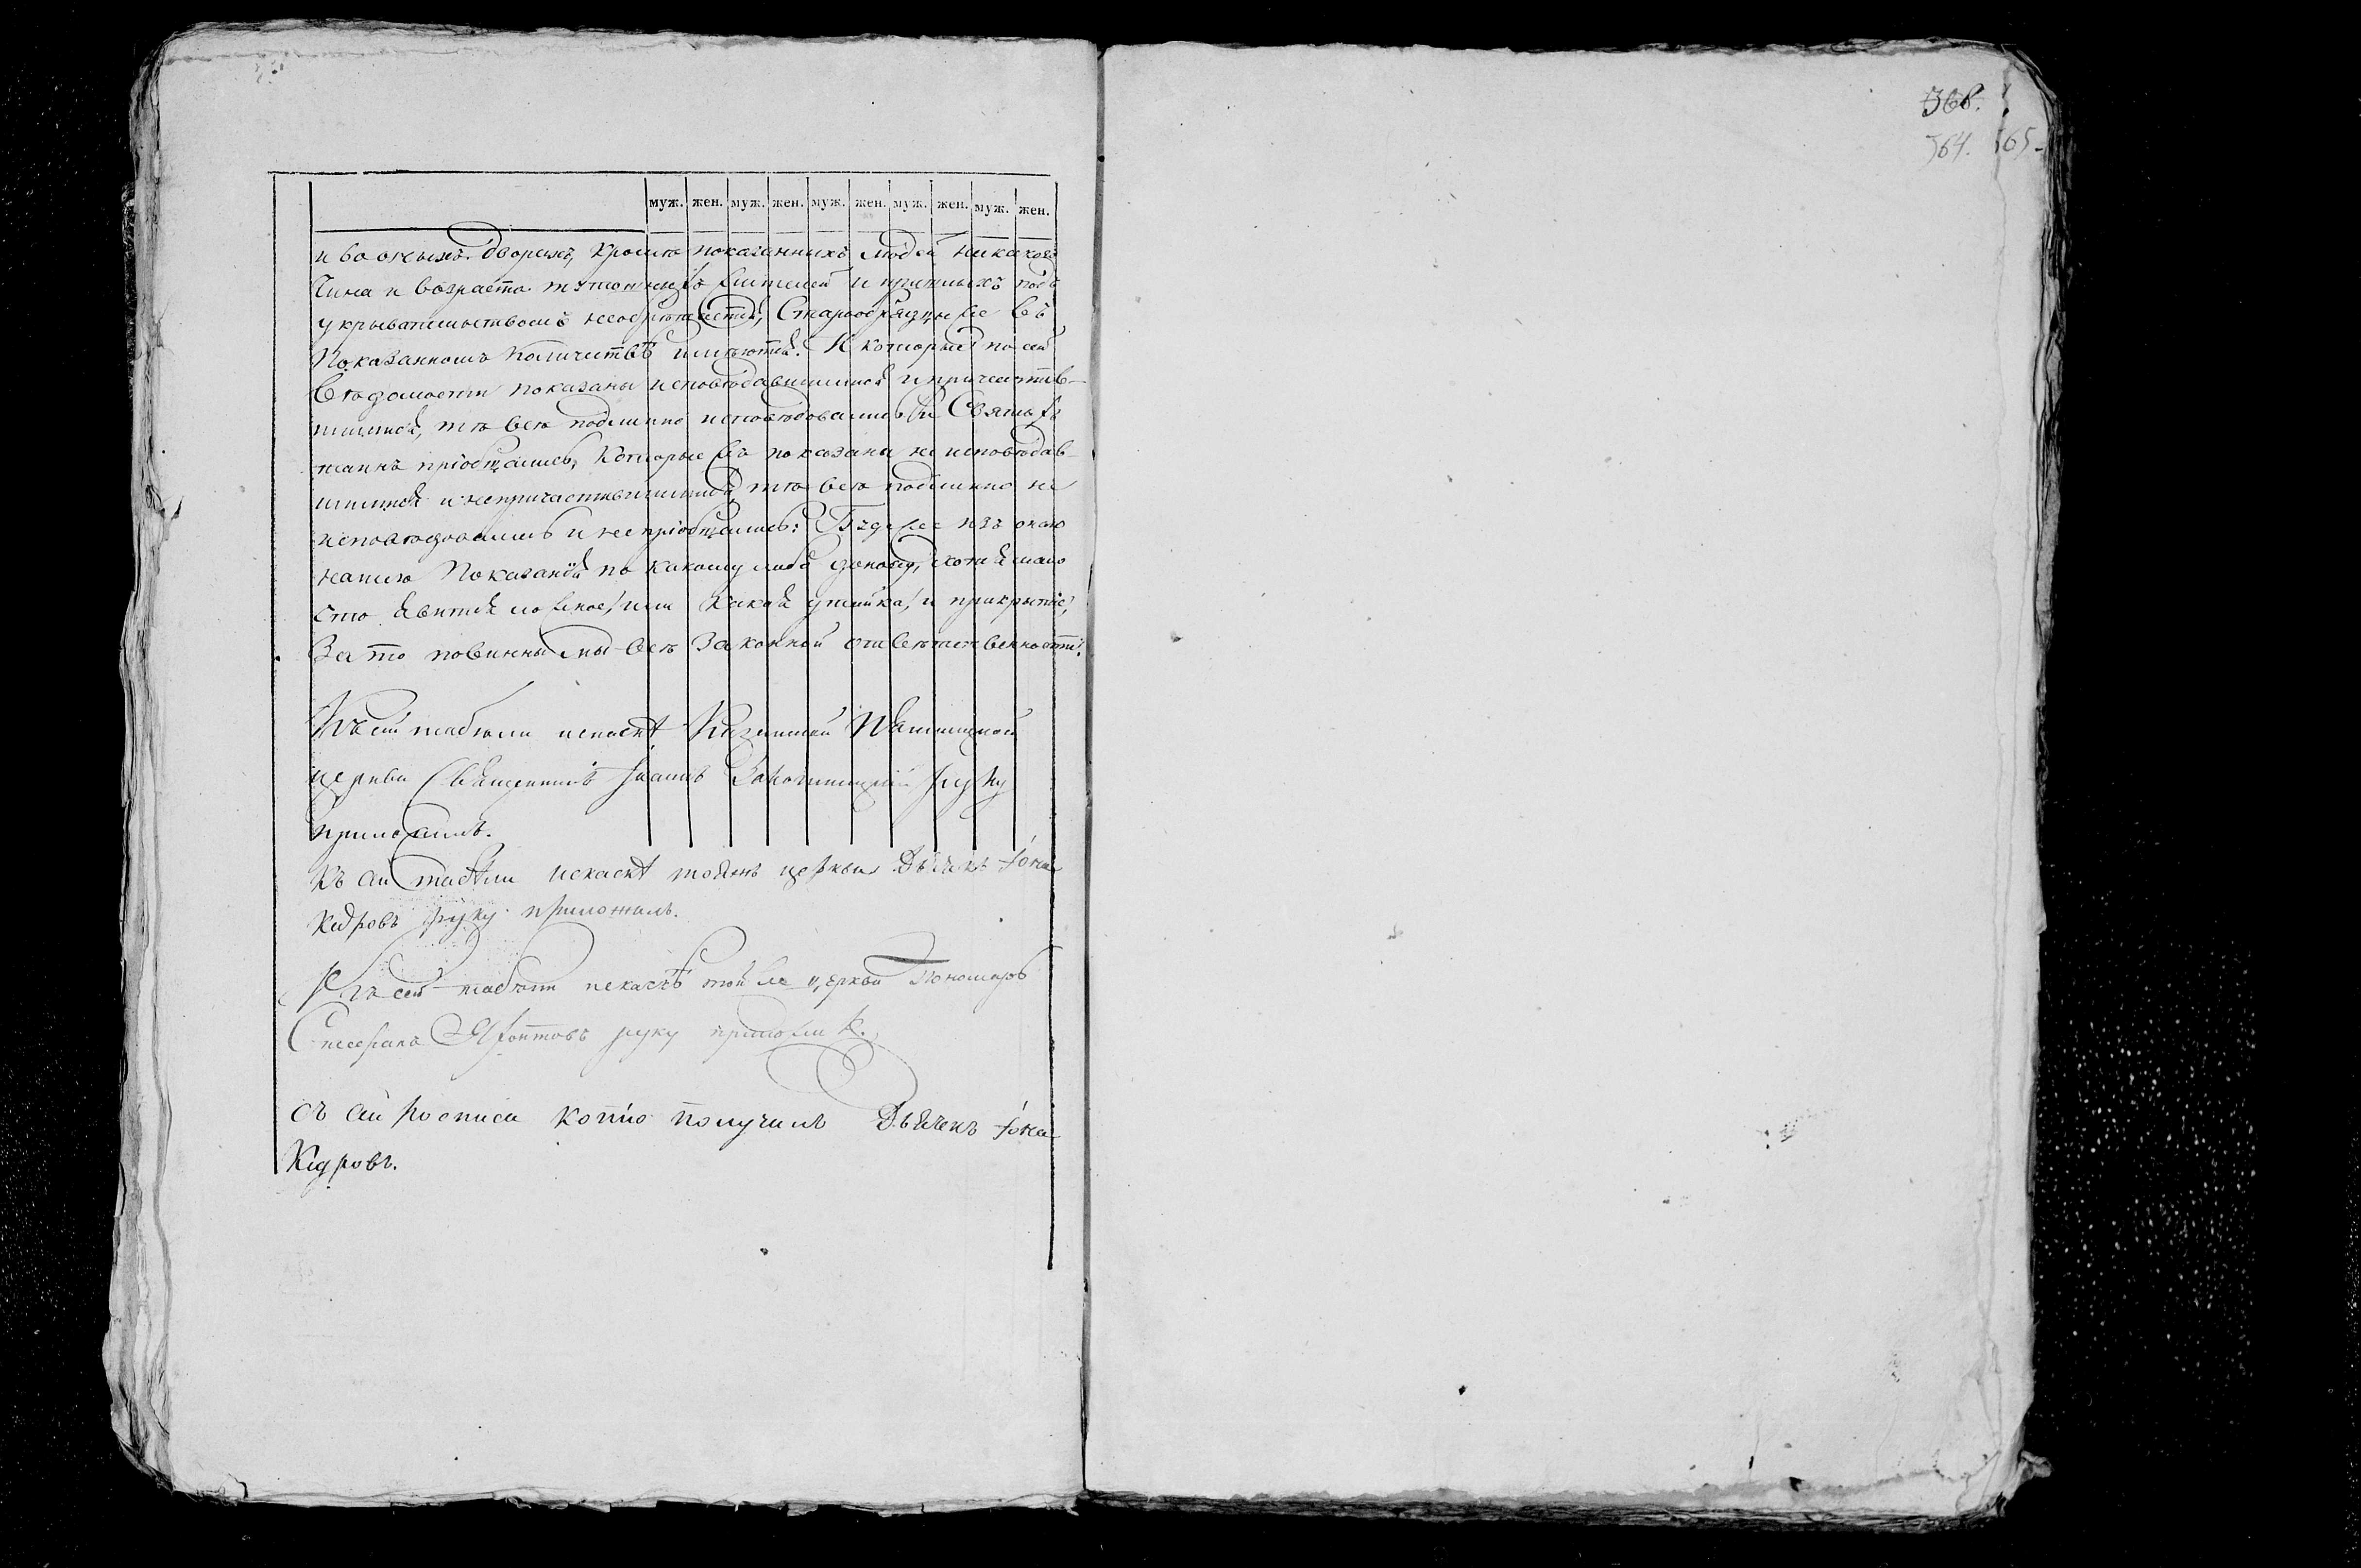 366.
364. 365-
муж. жен. муж. жен. муж. жен. муж. жен. муж. жен.
и во оныхъ дворехъ, кромѣ показанныхъ людей никаког
чина и возраста жителей и пришлыхъ подъ
укрывательствомъ необрѣтается, Старообрядцы же въ
показанномъ количествѣ имѣются. И которые по сей
вѣдомости показаны исповѣдавшимися и причастив-
шимися, тѣ всѣ подлинно исповѣдовались и Святыхъ
таинъ пріобщались, Которые жъ показаны не исповѣдав-
шимися и непричастившимися, тѣ всѣ подлинно не
исповѣдовались и не пріобщались: Буде же изъ онаго
нашего показанія по какому либо доносу, хотя мало
что явится ложное, или какая утайка, и прикрытіе,
За то повинны мы всѣ законной ответственности.
Къ сей табели Священникъ Іоаннъ руку
приложилъ.
Къ сей табели церкви Дьячекъ Іона
Кедровъ руку приложилъ.
Къ сей табели той же церкви Пономарь
руку приложилъ.
Съ сей росписи копію получилъ Дьячекъ Іона
Кедровъ.